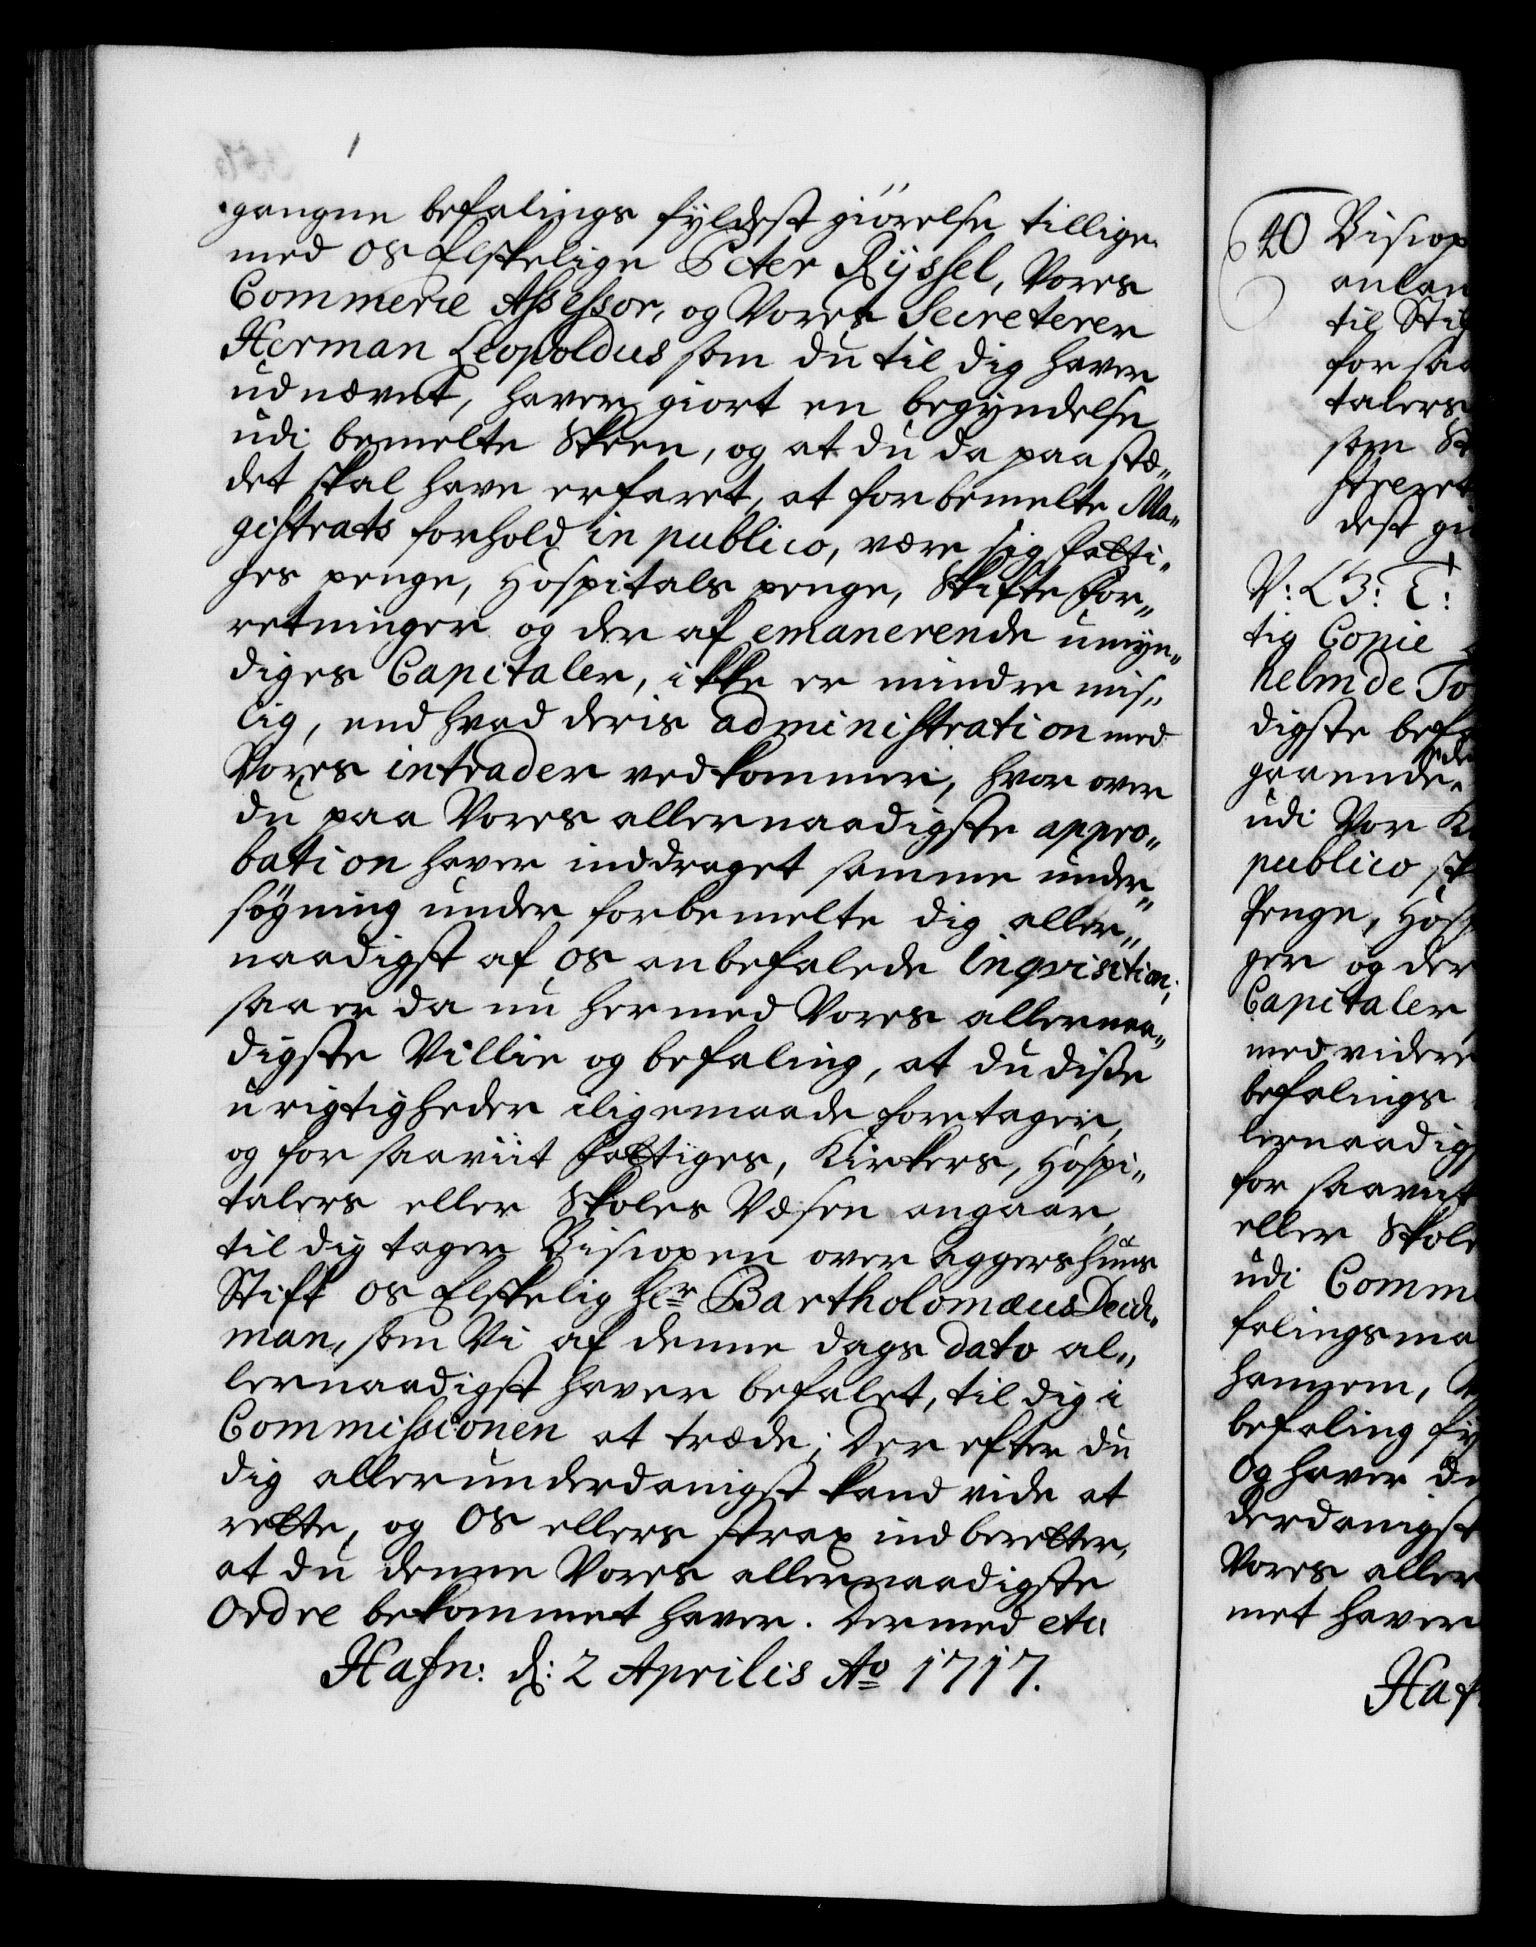 gangne befalings fyldest giörelse tillige
med os Elskelige Peter Ryssel, Vores
Commerie Assessor, og Vores Secreterer
Herman Leopoldus som du til dig haver
udnævnt, haver giort en begyndelse
udi bemelte Skeen, og at du da paa stæ„
det skal have erfaret, at forbemelte Ma„
gistrats forhold in publico, være sig fatti„
ges penge, Hospitals penge, Skifte for„
retninger og der af emanerende umyn„
diges Capitaler, ikke er mindre mis„
lig, end hvad deris administration med
Vores intrader vedkommer, hvor over
du paa Vores allernaadigste appro„
bation haver inddraget samme under„
søgning under forbemelte dig aller„
naadigst af os anbefalede inqvisition;
saa er da nu hermed Vores allernaa„
digste Villie og befaling, at du disse
urigtigheder iligemaade foretager,
og for saaviit fattiges, Kirkers, Hospi„
talers eller Skoles Væsen angaar,
til dig tager Bispen over Aggershuus
Stift os Elskelig Hr Bartholomæus Deich„
man, som Vi af denne dags dato al„
lernaadigst haver befalet, til dig i
Commissionen at træde; Der efter du
dig allerunderdanigst kand vide at
rette, og Os ellers strax indberetter,
at du denne Vores allernaadigste
Ordre bekommet haver. Dermed etc:
Hafn: d: 2 Aprilis Ao 1717.
40 Bisop
anlan
til Stif
for saa
talers
som St
streret
dest gi
V: C3: T:
tig Copie
helm de To
digste befa
gaaende
udi Vor K
publico
Penge, Hosp
ger og der
Capitaler
med videre
befalings
lernaadigs
for saaviit
eller Skole
udi Comm
falingsma
hannem,
befaling fy
Og haver du
derdanigst
Vores aller
met haver
Haf